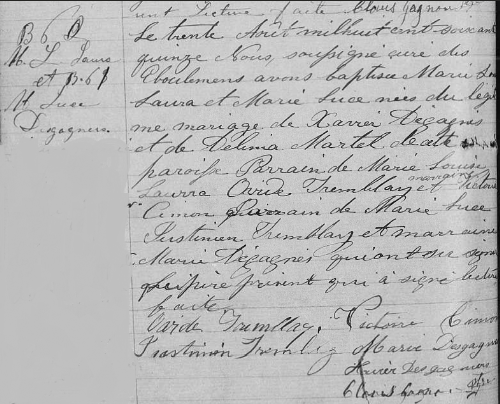 B 6
M. L Laura
et B. 61
M Luce
Desgagners
lecture faite Clovis Gagnon ptre
Le trente Août mil huit cent soixant
quinze Nous, soussigné curé des
Eboulemens avons baptisée Marie
Laura et Marie Luce nées du légi
me mariage de Xavier Dégagnés
et de Délima Martel de cette
paroisse Parrain de Marie Louise
Laurra Ovide Tremblay et marraine Victoire
Cimon Parrain de Marie Luce
Justinien Tremblay et marraine
Marie Dégagnes qui ont su signer
père présent qui à signé lecture
faite
Ovide Tremblay. Victoire Cimon
Justinien Tremblay Marie Desgagné
Xavier Desgagners
Clovis Gagnon Ptre